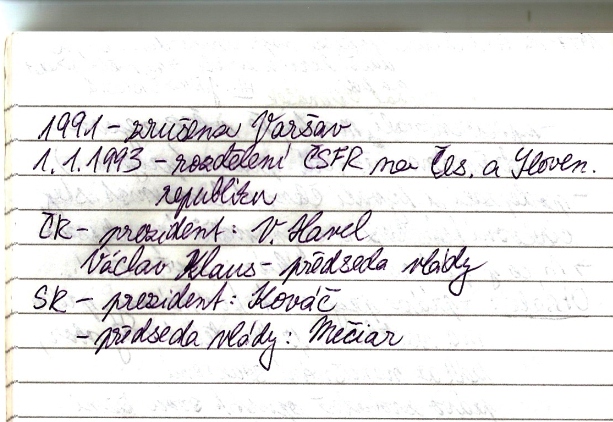 1991 - zrušena Varšav
1.1.1993 - rozdělení ČSFR na Čes. a Sloven.
republiku
ČR - prezident: V. Havel
Václav Klaus - předseda vlády
SR - prezident: Kováč
- předseda vlády: Mečiar